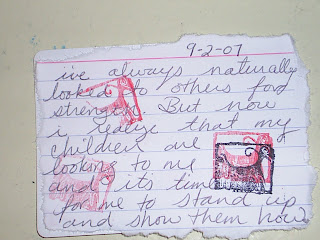 9-2-07
i've always naturally
looked to others for
strength. But now
i realize that my
children are
looking to me
and it's time
for me to stand up
and show them how.